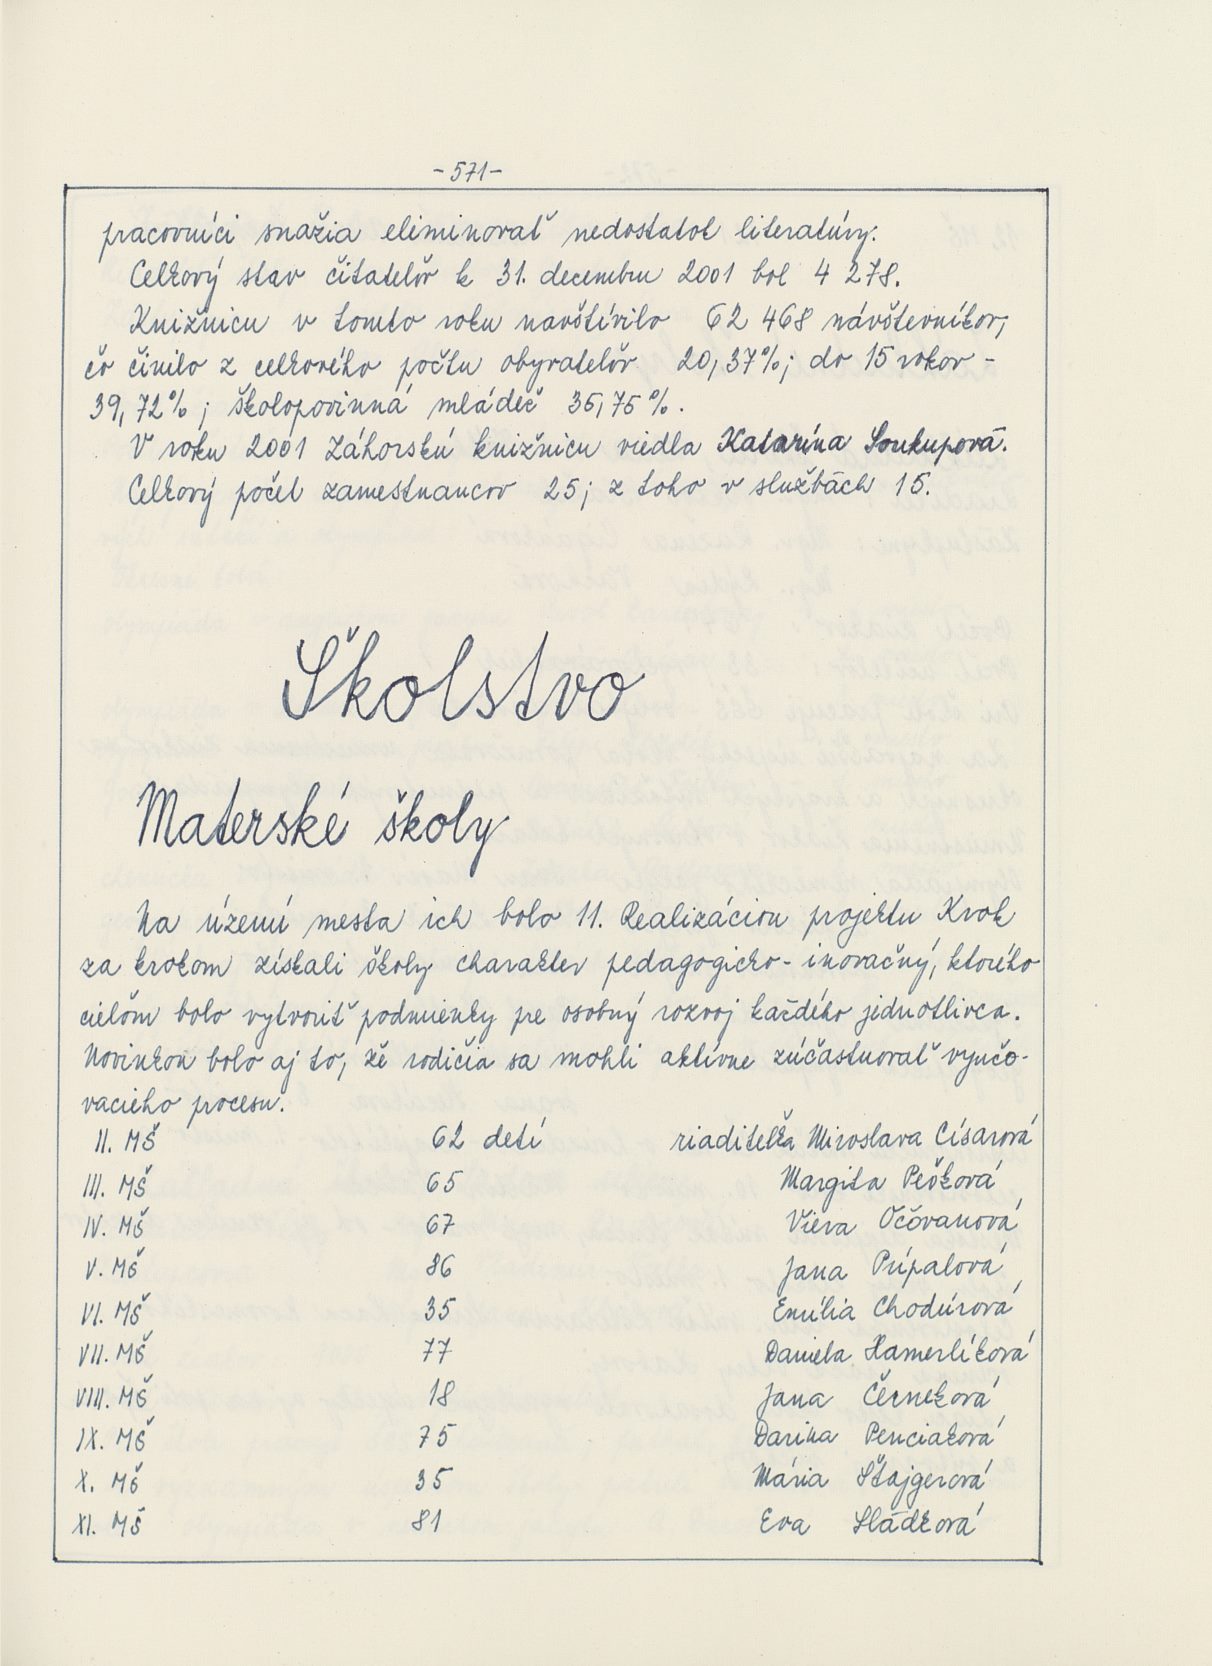 -571-
pracovníci snažia eliminovať nedostatok literatúry.
Celkový stav čitateľov k 31. decembru 2001 bol 4 278.
Knižnicu v tomto roku navštívilo 62 468 návštevníkov,
čo činilo z celkového počtu obyvateľov 20,37%; do 15 rokov -
39,72% ; školopovinná mládež 35,75%.
V roku 2001 Záhorskú knižnicu viedla Katarína Soukupová.
Celkový počet zamestnancov 25; z toho v službách 15.
Školstvo
Materské školy
Na území mesta ich bolo 11. Realizáciou projektu Krok
za krokom získali školy charakter pedagogicko-inovačný, ktorého
cieľom bolo vytvoriť podmienky pre osobný rozvoj každého jednotlivca.
Novinkou bolo aj to, že rodičia sa mohli aktívne zúčastňovať vyučo-
vacieho procesu.
II. MŠ 62 detí riaditeľka Miroslava Císarová
III. MŠ 65 Margita Pešková
IV. MŠ 67 Viera Očovanová
V. MŠ 86 Jana Prípalová
VI. MŠ 35 Emília Chodúrová
VII. MŠ 77 Daniela Hamerlíková
VIII. MŠ 18 Jana Černeková
IX. MŠ 75 Darina Penciaková
X. MŠ 35 Mária Štajgerová
XI. MŠ 81 Eva Sládková